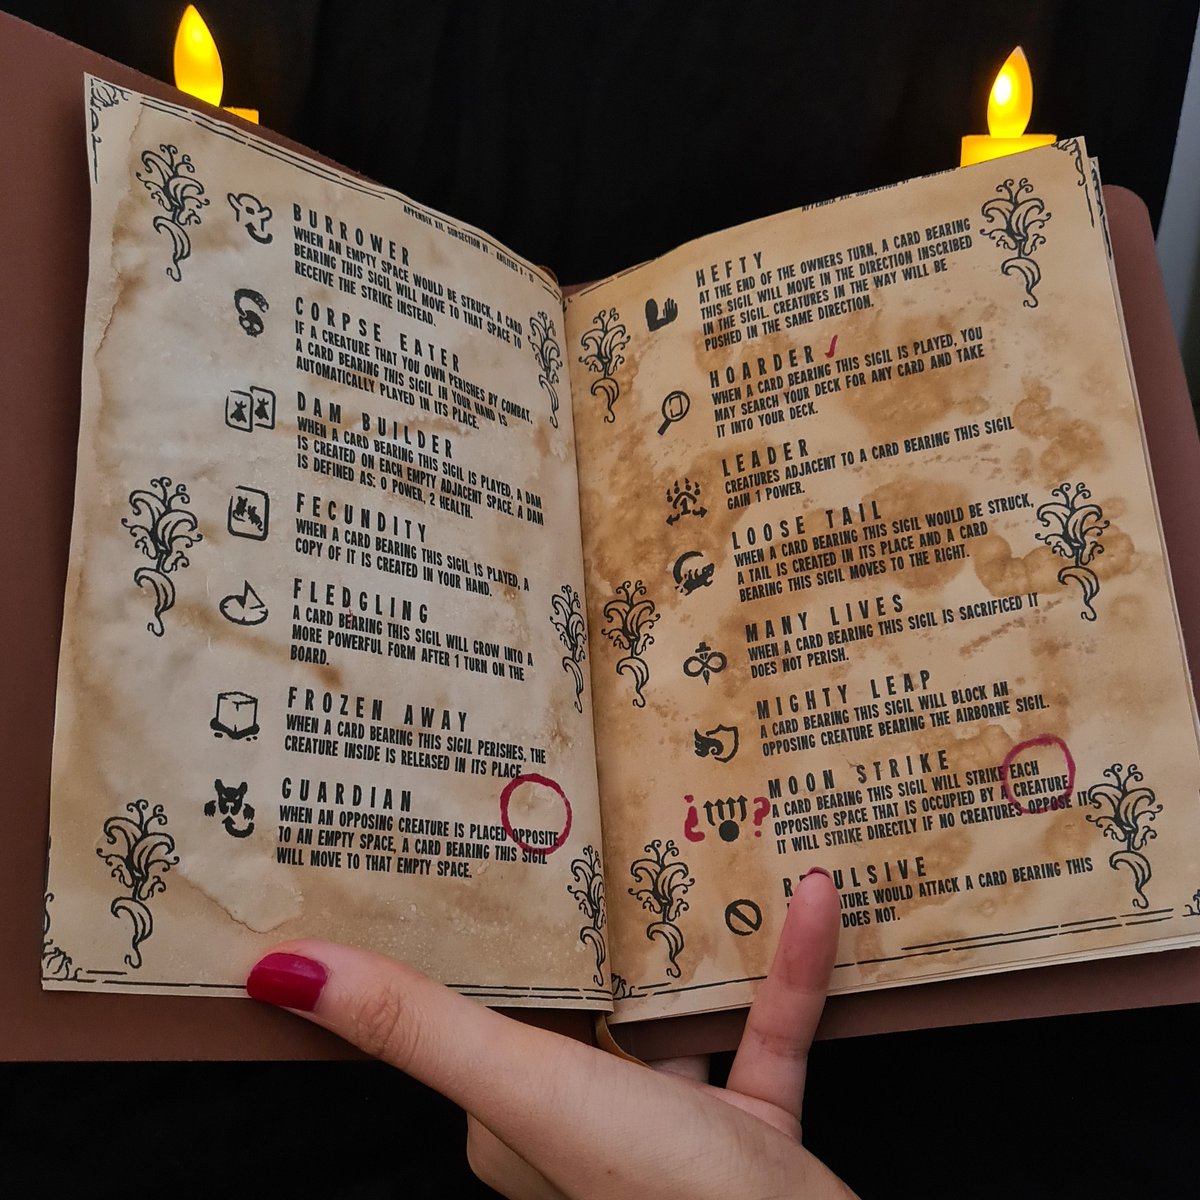 APPENDIX XII, SUBSECTION VI - ABILITIES
BURROWER
WHEN AN EMPTY SPACE WOULD BE STRUCK, A CARD
BEARING THIS SIGIL WILL MOVE TO THAT SPACE TO
RECEIVE THE STRIKE INSTEAD.
CORPSE EATER
IF A CREATURE THAT YOU OWN PERISHES BY COMBAT,
A CARD BEARING THIS SIGIL IN YOUR HAND IS
AUTOMATICALLY PLAYED IN ITS PLACE.
DAM BUILDER
WHEN A CARD BEARING THIS SIGIL IS PLAYED, A DAM
IS CREATED ON EACH EMPTY ADJACENT SPACE. A DAM
IS DEFINED AS: 0 POWER, 2 HEALTH.
FECUNDITY
WHEN A CARD BEARING THIS SIGIL IS PLAYED, A
COPY OF IT IS CREATED IN YOUR HAND.
FLEDGLING
A CARD BEARING THIS SIGIL WILL GROW INTO A
MORE POWERFUL FORM AFTER 1 TURN ON THE
BOARD.
FROZEN AWAY
WHEN A CARD BEARING THIS SIGIL PERISHES, THE
CREATURE INSIDE IS RELEASED IN ITS PLACE.
GUARDIAN
WHEN AN OPPOSING CREATURE IS PLACED OPPOSITE
TO AN EMPTY SPACE, A CARD BEARING THIS SIGIL
WILL MOVE TO THAT EMPTY SPACE.
APPENDIX XII, SUBSECTION
HEFTY
AT THE END OF THE OWNERS TURN, A CARD BEARING
THIS SIGIL WILL MOVE IN THE DIRECTION INSCRIBED
IN THE SIGIL. CREATURES IN THE WAY WILL BE
PUSHED IN THE SAME DIRECTION.
HOARDER ✓
WHEN A CARD BEARING THIS SIGIL IS PLAYED, YOU
MAY SEARCH YOUR DECK FOR ANY CARD AND TAKE
IT INTO YOUR DECK.
LEADER
CREATURES ADJACENT TO A CARD BEARING THIS SIGIL
GAIN 1 POWER.
LOOSE TAIL
WHEN A CARD BEARING THIS SIGIL WOULD BE STRUCK,
A TAIL IS CREATED IN ITS PLACE AND A CARD
BEARING THIS SIGIL MOVES TO THE RIGHT.
MANY LIVES
WHEN A CARD BEARING THIS SIGIL IS SACRIFICED IT
DOES NOT PERISH.
MIGHTY LEAP
A CARD BEARING THIS SIGIL WILL BLOCK AN
OPPOSING CREATURE BEARING THE AIRBORNE SIGIL.
¿ ? MOON STRIKE
A CARD BEARING THIS SIGIL WILL STRIKE EACH
OPPOSING SPACE THAT IS OCCUPIED BY A CREATURE
IT WILL STRIKE DIRECTLY IF NO CREATURES OPPOSE IT
WOULD ATTACK A CARD BEARING THIS
DOES NOT.